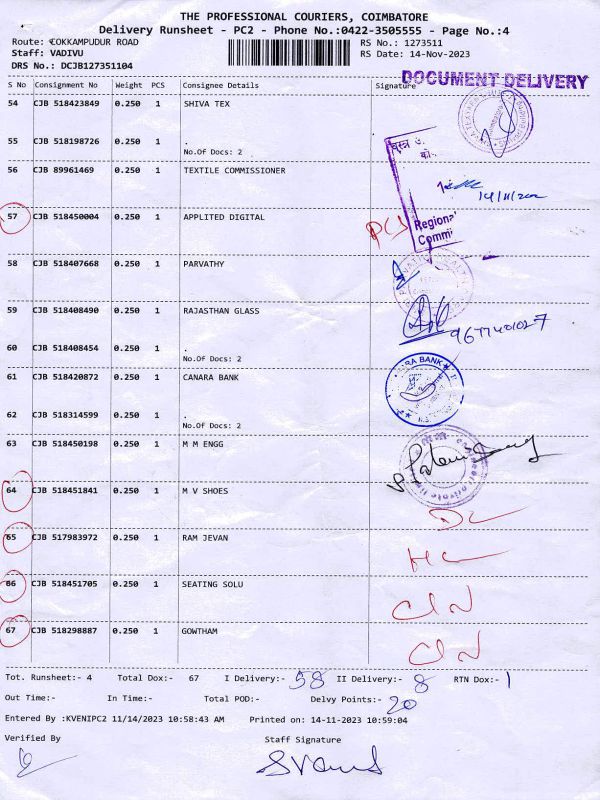 THE PROFESSIONAL COURIERS, COIMBATORE
Delivery Runsheet - PC2 - Phone No.:0422-3505555 - Page No.:4
Route: COKKAMPUDUR ROAD RS No.: 1273511
Staff: VADIVU RS Date: 14-Nov-2023
DRS No.: DCJB127351104
DOCUMENT DELIVERY
S No Consignment No Weight PCS Consignee Details Signature
54 CJB 518423849 0.250 1 SHIVA TEX
55 CJB 518198726 0.250 1 .
No.Of Docs: 2
56 CJB 89961469 0.250 1 TEXTILE COMMISSIONER
57 CJB 518450004 0.250 1 APPLITED DIGITAL
Regional
Commi
58 CJB 518407668 0.250 1 PARVATHY
59 CJB 518408490 0.250 1 RAJASTHAN GLASS
9677401027
60 CJB 518408454 0.250 1 .
No.Of Docs: 2
61 CJB 518420872 0.250 1 CANARA BANK
BANK
62 CJB 518314599 0.250 1 .
No.Of Docs: 2
63 CJB 518450198 0.250 1 M M ENGG
64 CJB 518451841 0.250 1 M V SHOES
DL
65 CJB 517983972 0.250 1 RAM JEVAN
HC
66 CJB 518451705 0.250 1 SEATING SOLU
CLN
67 CJB 518298887 0.250 1 GOWTHAM
CLN
Tot. Runsheet:- 4 Total Dox:- 67 I Delivery:- 58 II Delivery:- 8 RTN Dox:- 1
Out Time:- In Time:- Total POD:- Delvy Points:- 20
Entered By :KVENIPC2 11/14/2023 10:58:43 AM Printed on: 14-11-2023 10:59:04
Verified By Staff Signature